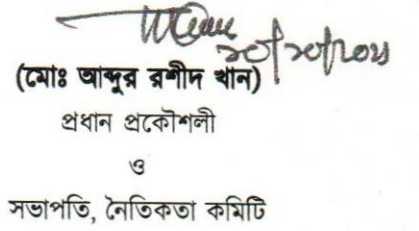 (মোঃ আব্দুর রশীদ খান)
প্রধান প্রকৌশলী
ও
সভাপতি, নৈতিকতা কমিটি